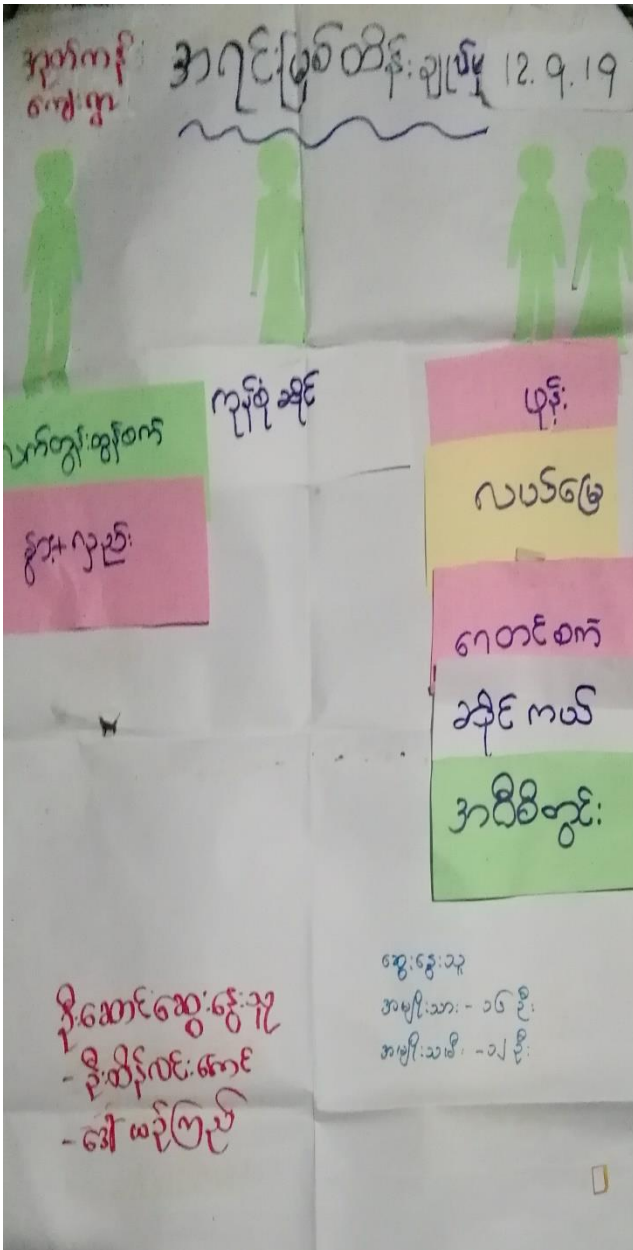 အုတ်ကန်
ကျေးရွာ
အရင်းမြစ်ထိန်းချုပ်မှု 12.9.19
လက်တွန်းထွန်စက်
နွား+လှည်း
ကုန်စုံဆိုင်
ဖုန်း
လယ်မြေ
ရေတင်စက်
ဆိုင်ကယ်
အဝီစိတွင်း
ဦးဆောင်ဆွေးနွေးသူ
- ဦးထိန်လင်းအောင်
- ဒေါ်ယဉ်ကြည်
ဆွေးနွေးသူ
အမျိုးသား - ၁၆ ဦး
အမျိုးသမီး - ၁၂ ဦး